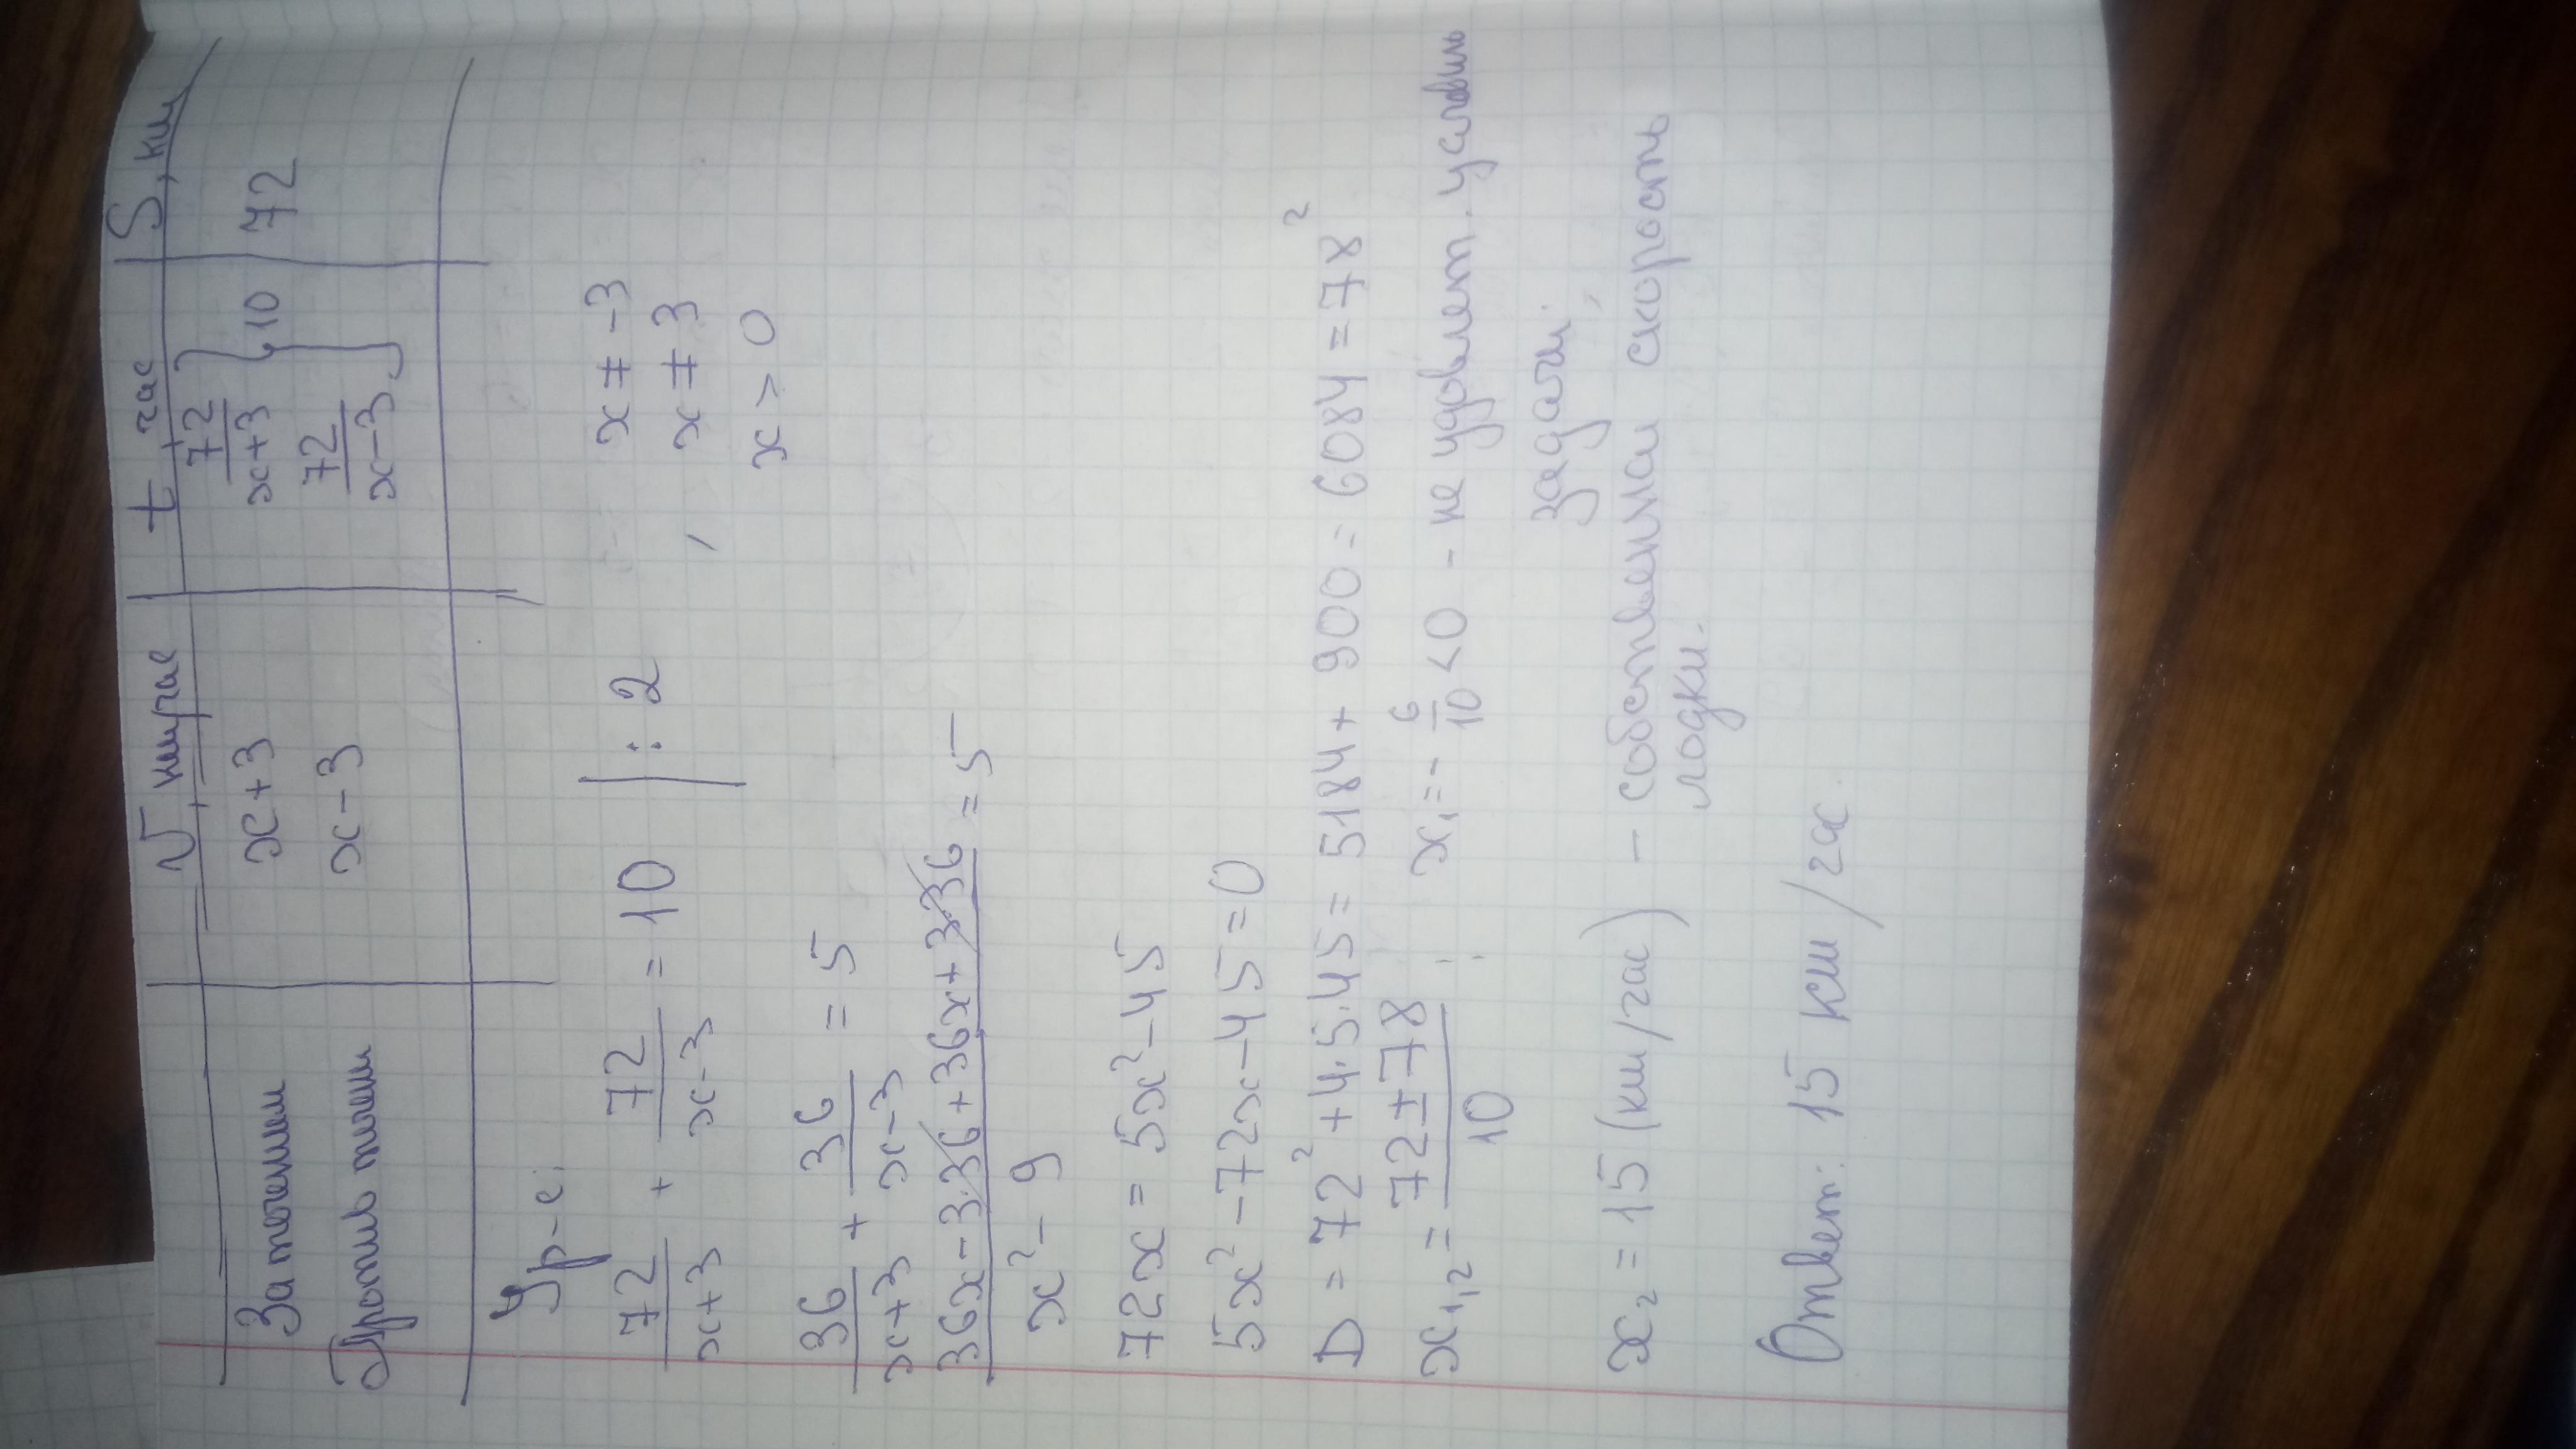 V, км/час | t, час | S, км
За течением x+3 72/(x+3) } 10 72
Против течен x-3 72/(x-3)
Ур-е:
72/(x+3) + 72/(x-3) = 10 | : 2 , x ≠ -3
x ≠ 3
x > 0
36/(x+3) + 36/(x-3) = 5
(36x-3·36+36x+3·36)/(x²-9) = 5
72x = 5x²-45
5x²-72x-45=0
D = 72²+4·5·45 = 5184+900 = 6084 = 78²
x₁,₂ = (72±78)/10 ; x₁ = -6/10 <0 - не удовлет. условию
задачи;
x₂ = 15 (км/час) - собственная скорость
лодки.
Ответ: 15 км/час.